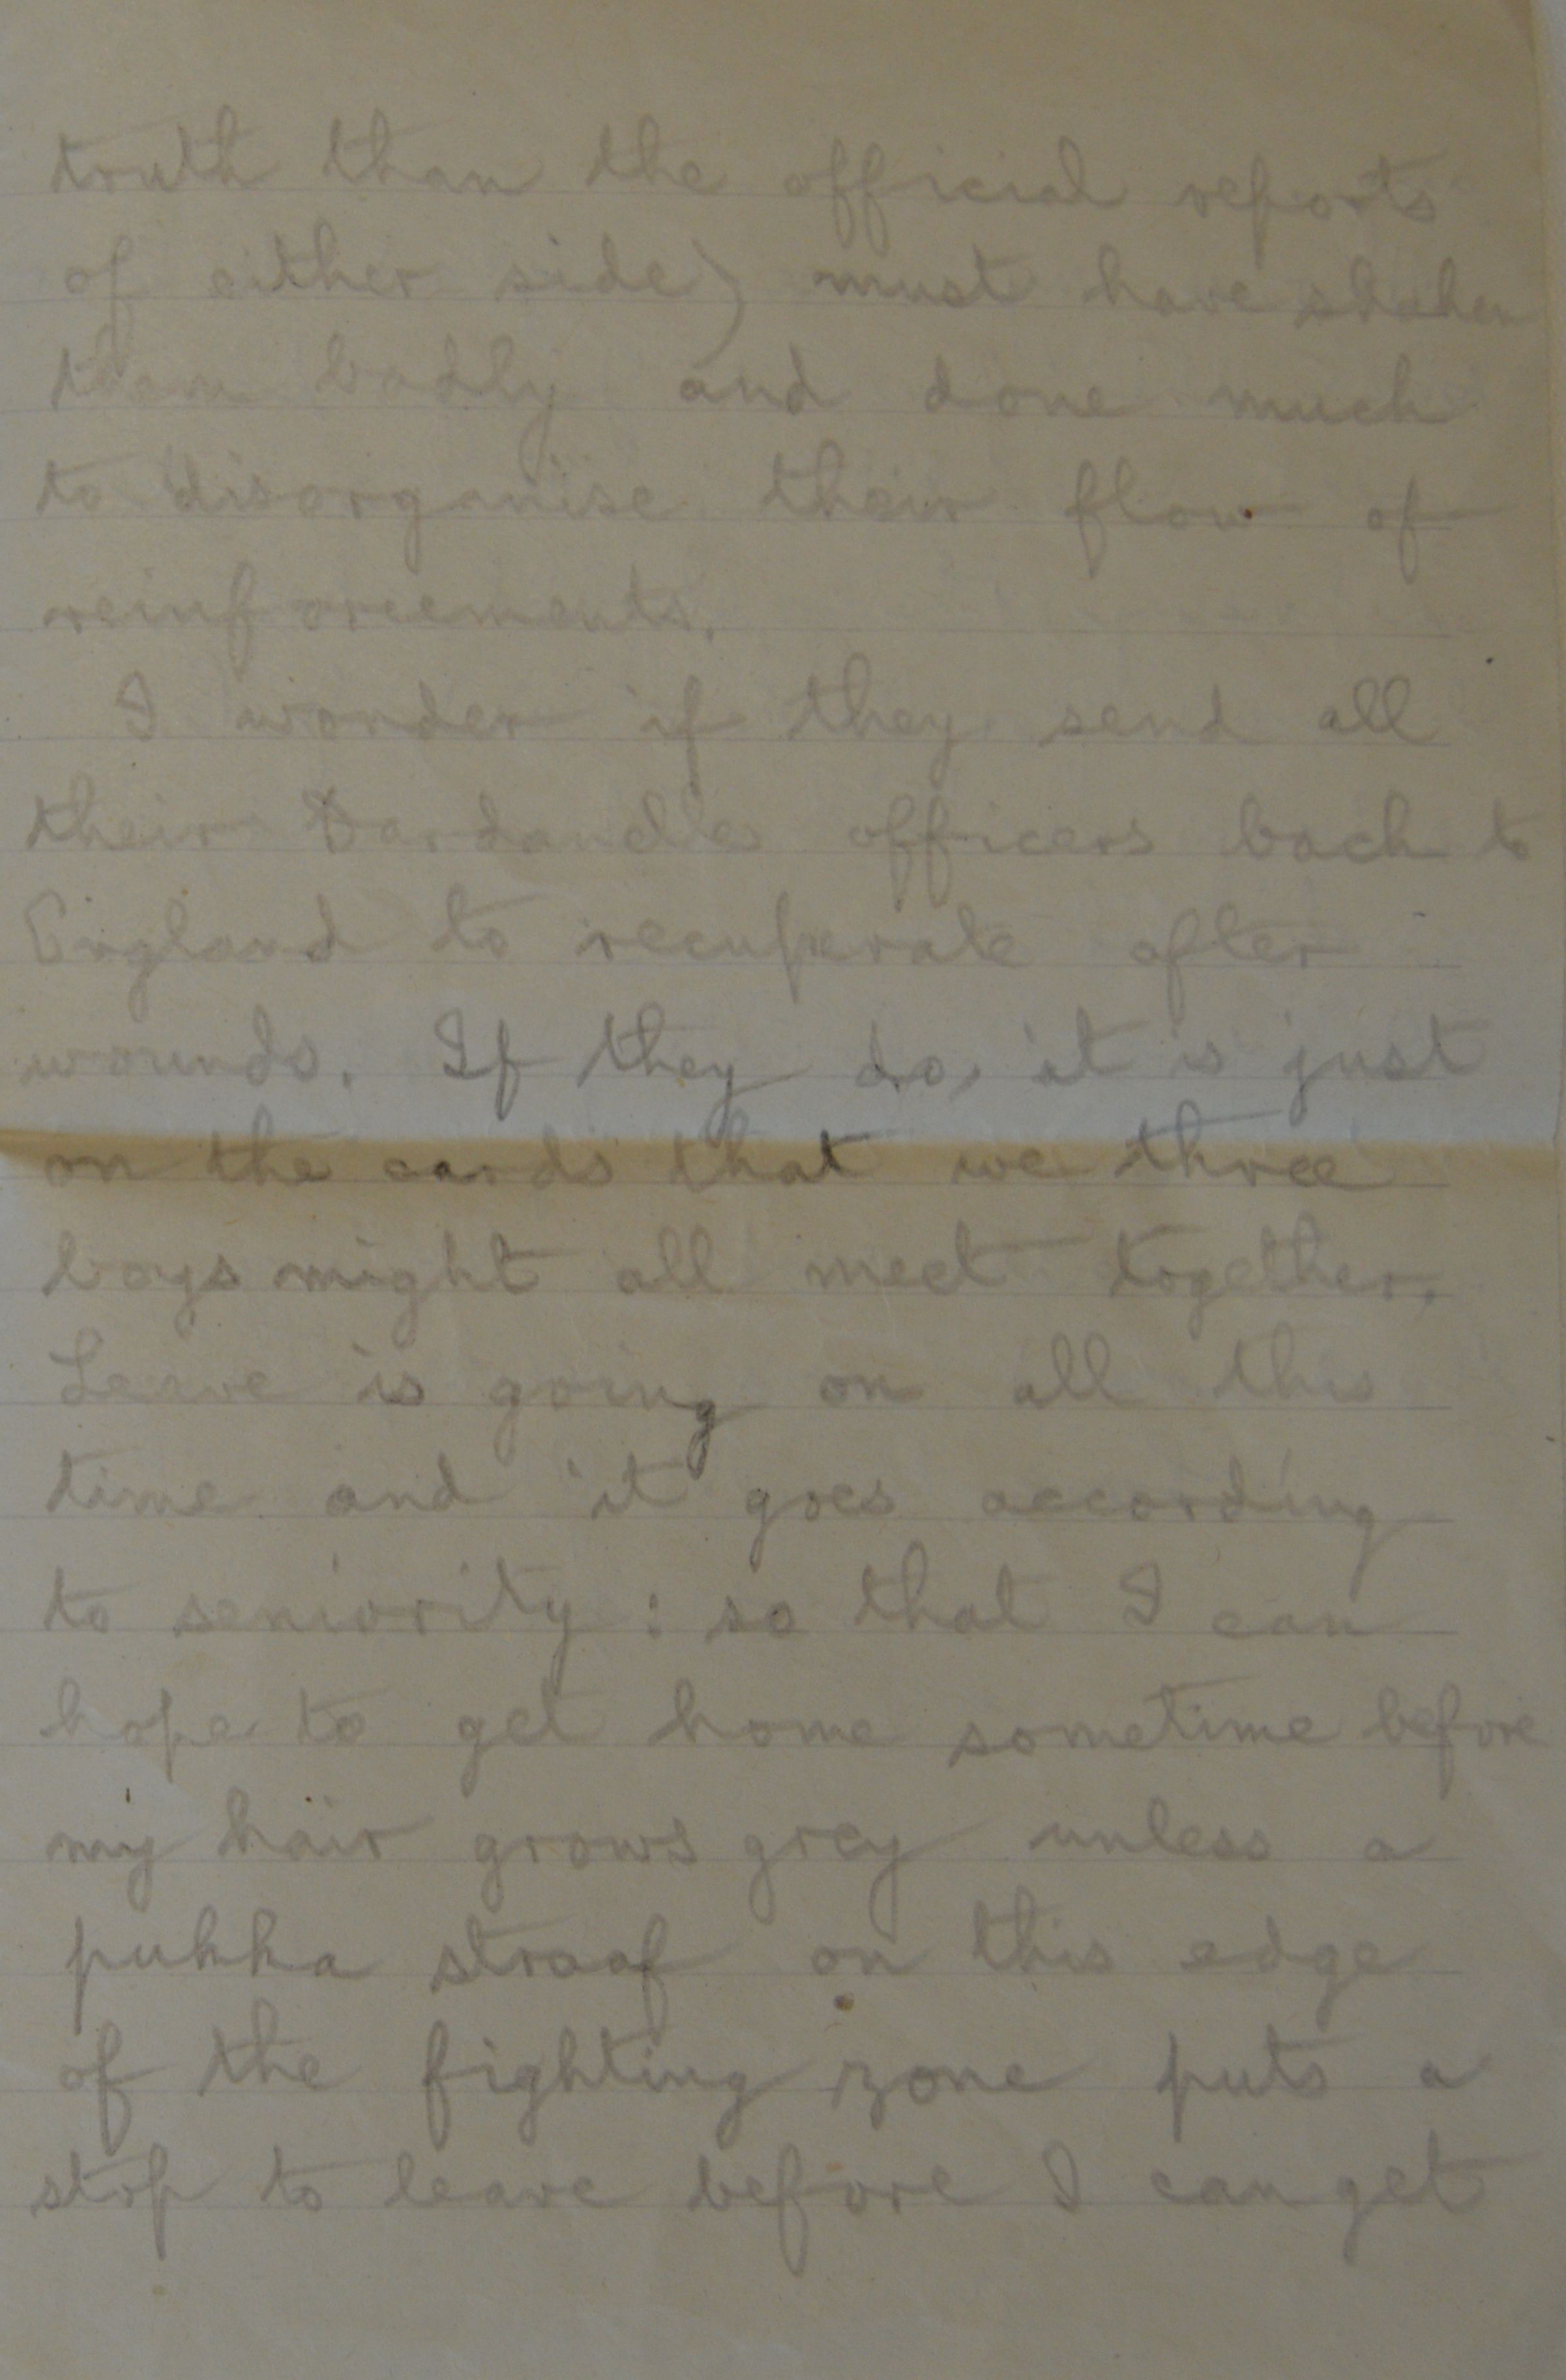 truth than the official reports
of either side) must have shaken
them badly and done much
to disorganise their flow of
reinforcements.
I wonder if they send all
their Dardanelles officers back to
England to recuperate after
wounds. If they do, it is just
on the cards that we three
boys might all meet together.
Leave is going on all this
time and it goes according
to seniority : so that I can
hope to get home sometime before
my hair grows grey unless a
pukka straaf on this edge
of the fighting zone puts a
stop to leave before I can get